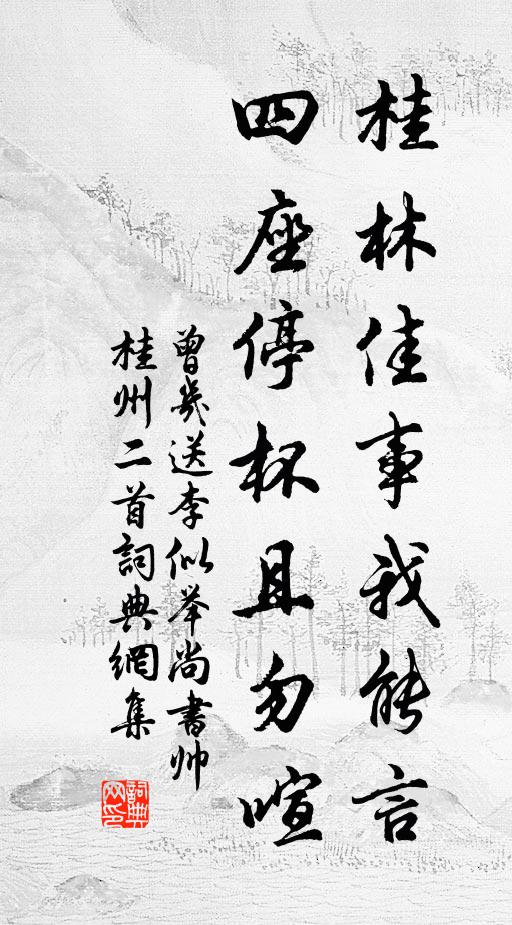 桂林佳事我能言
四座停杯且勿喧
曾幾送李似举尚書帅
桂州二首詞典網集
詞典网印